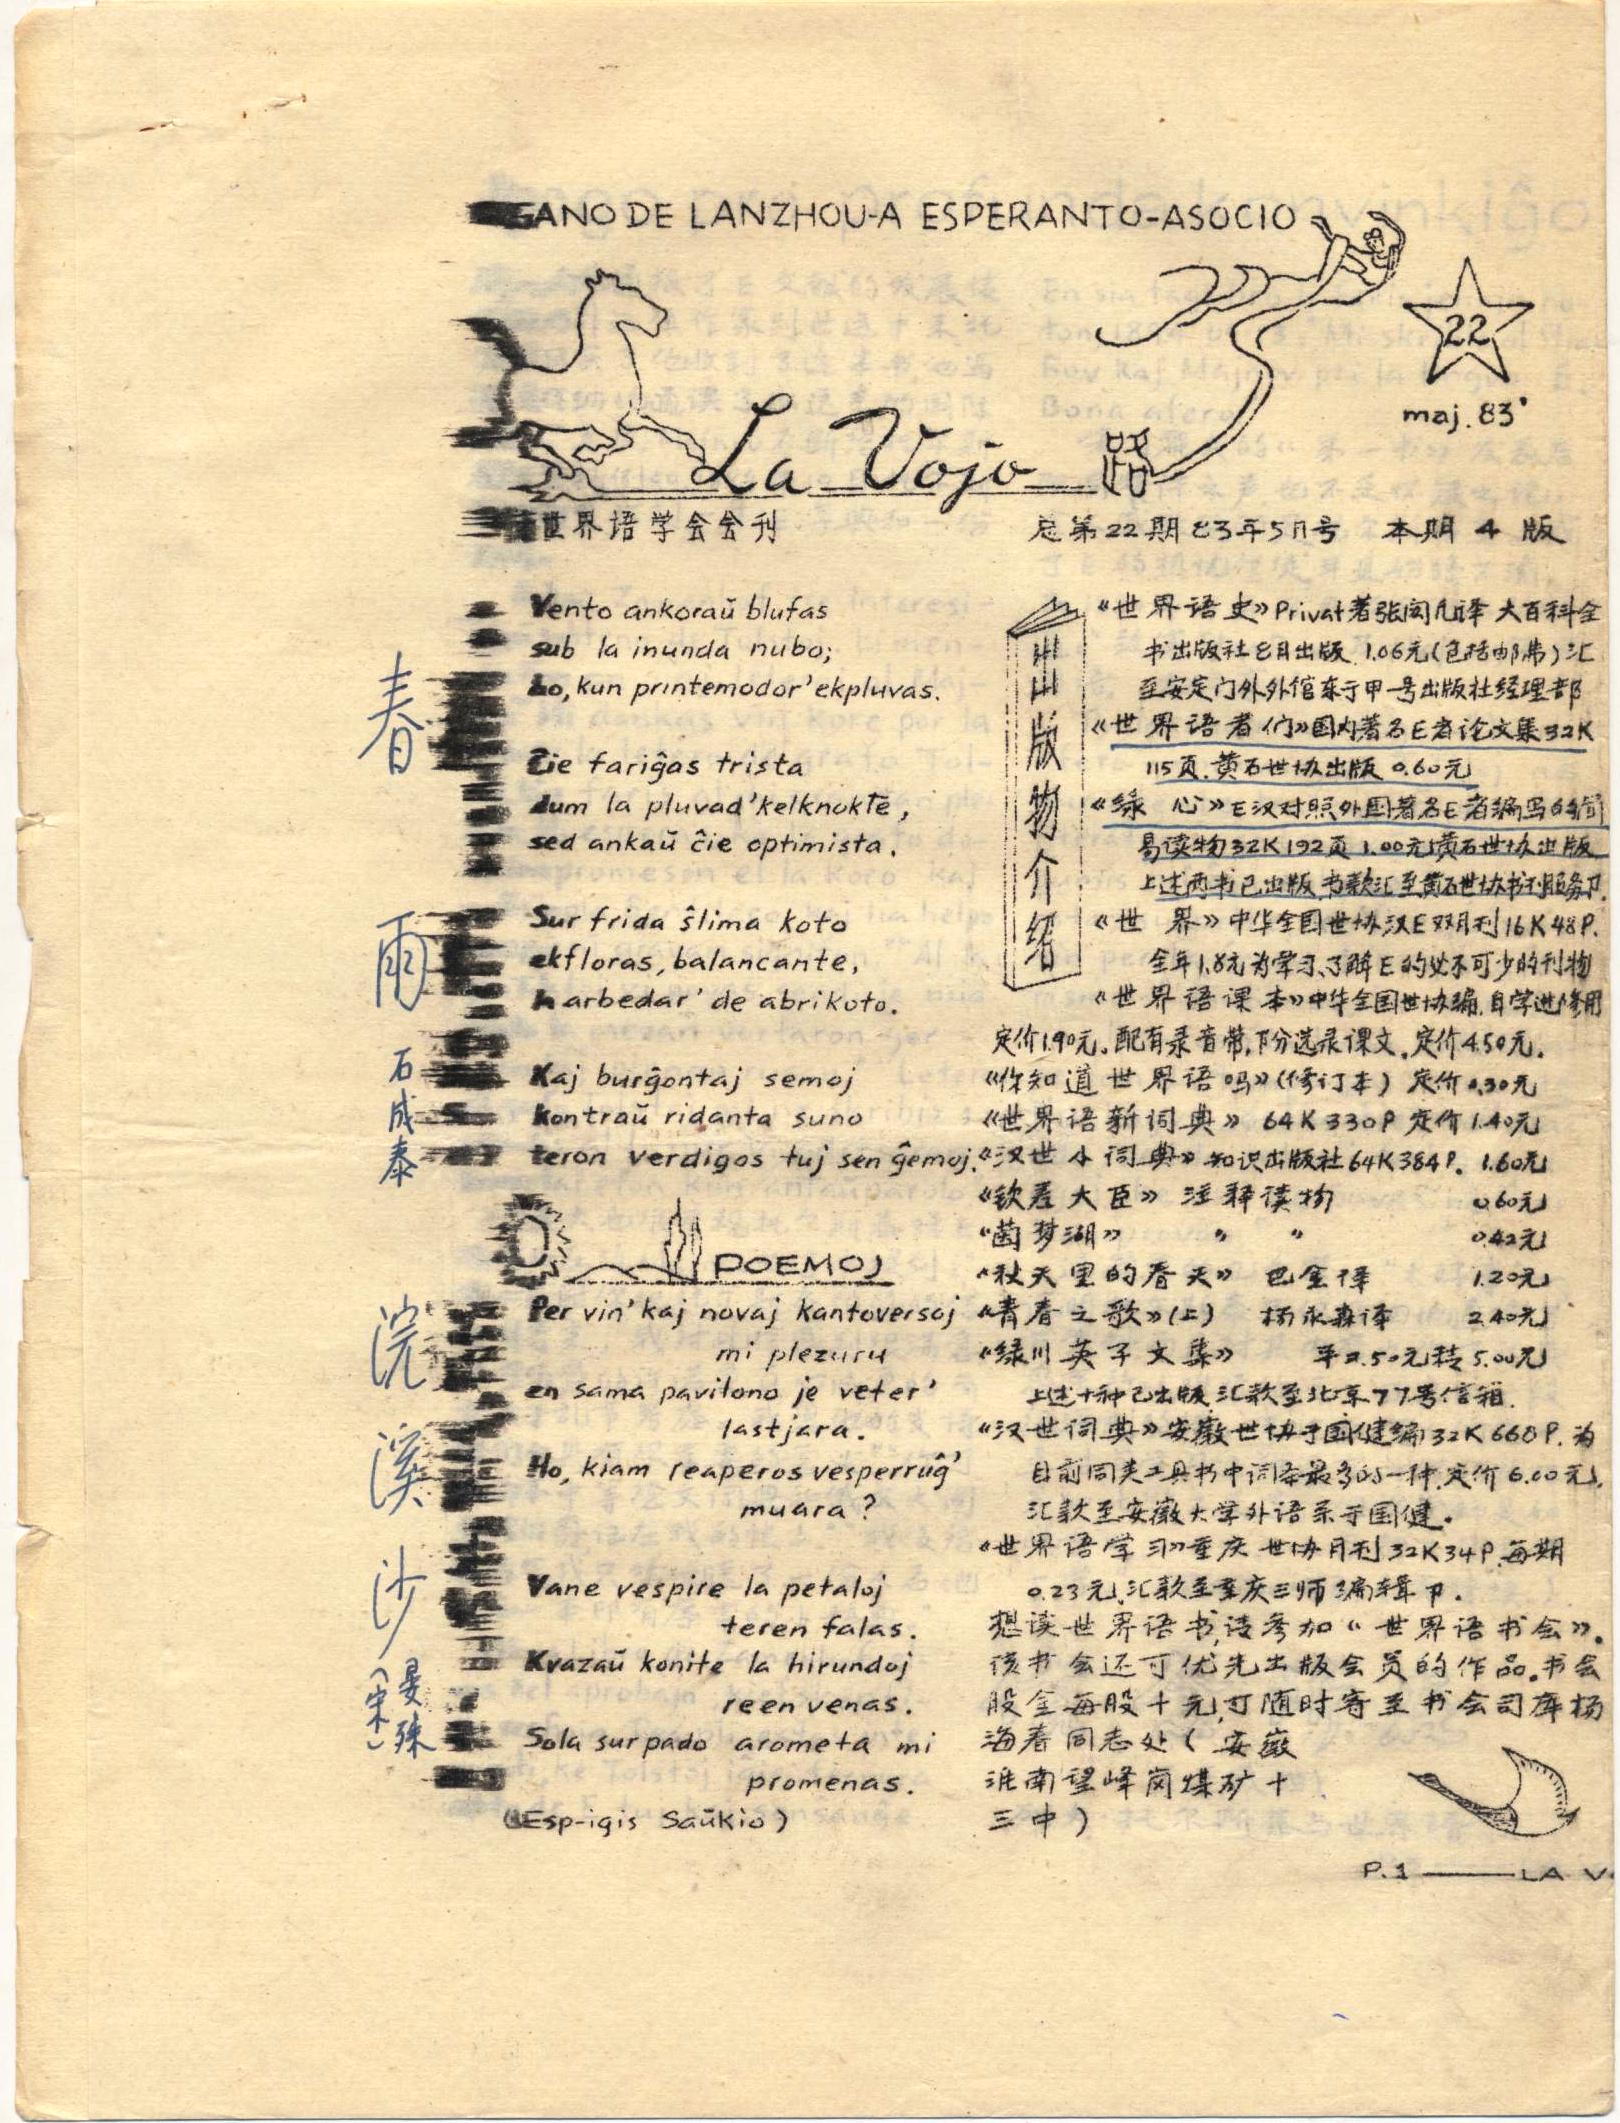 GANO DE LANZHOU-A ESPERANTO-ASOCIO
22
maj. 83'
La Vojo 路
世界语学会会刊
总第22期 83年5月号 本期 4 版
春
雨
石成泰
Vento ankoraŭ blufas
sub la inunda nubo;
Lo, kun printemodor' ekpluvas.
Ĉie fariĝas trista
dum la pluvad' kelknokte,
sed ankaŭ ĉie optimista.
Sur frida ŝlima koto
ekfloras, balancante,
harbedar' de abrikoto.
Kaj burĝontaj semoj
kontraŭ ridanta suno
teron verdigos tuj sen ĝemoj.
POEMOJ
浣
溪
沙
(宋)晏殊
Per vin' kaj novaj kantoversoj
mi plezuru
en sama pavilono je veter'
lastjara.
Ho, kiam reaperos vesperruĝ'
muara?
Vane vespire la petaloj
teren falas.
Kvazaŭ konite la hirundoj
reen venas.
Sola sur pado arometa mi
promenas.
(Esp-igis Saŭkio)
出版物介绍
《世界语史》Privat著张闳凡译 大百科全
书出版社8月出版 1.06元(包括邮费)汇
至安定门外外馆东于甲一号出版社经理部
《世界语者们》国内著名E者论文集32K
115页.黄石世协出版 0.60元
《绿 心》E汉对照外国著名E者编写的简
易读物32K192页 1.00元黄石世协出版
上述两书已出版 书款汇至黄石世协书刊服务卩.
《世 界》中华全国世协汉E双月刊16K48P.
全年1.8元为学习、了解E的处不可少的刊物
《世界语课本》中华全国世协编.自学进修用
定价1.90元。配有录音带,卩分选录课文。定价4.50元.
《你知道世界语吗》(修订本) 定价0.30元
《世界语新词典》 64K 330P 定价1.40元
《汉世小词典》知识出版社64K384P. 1.60元
《钦差大臣》 注释读物 0.60元
《茵梦湖》 〃 〃 0.42元
《秋天里的春天》 巴金译 1.20元
《青春之歌》(上) 杨永森译 2.40元
《绿川英子文集》 平2.50元精5.00元
上述十种已出版.汇款至北京77号信箱.
《汉世词典》安徽世协于国健编32K660P.为
目前同类工具书中词条最多的一种.定价6.00元.
汇款至安徽大学外语系于国健.
《世界语学习》重庆世协月刊32K34P.每期
0.23元.汇款至重庆三师编辑卩.
想读世界语书,请参加《世界语书会》.
该书会还可优先出版会员的作品。书会
股金每股十元,可随时寄至书会司库杨
海春同志处(安徽
淮南望峰岗煤矿十
三中)
P.1 —— LA V